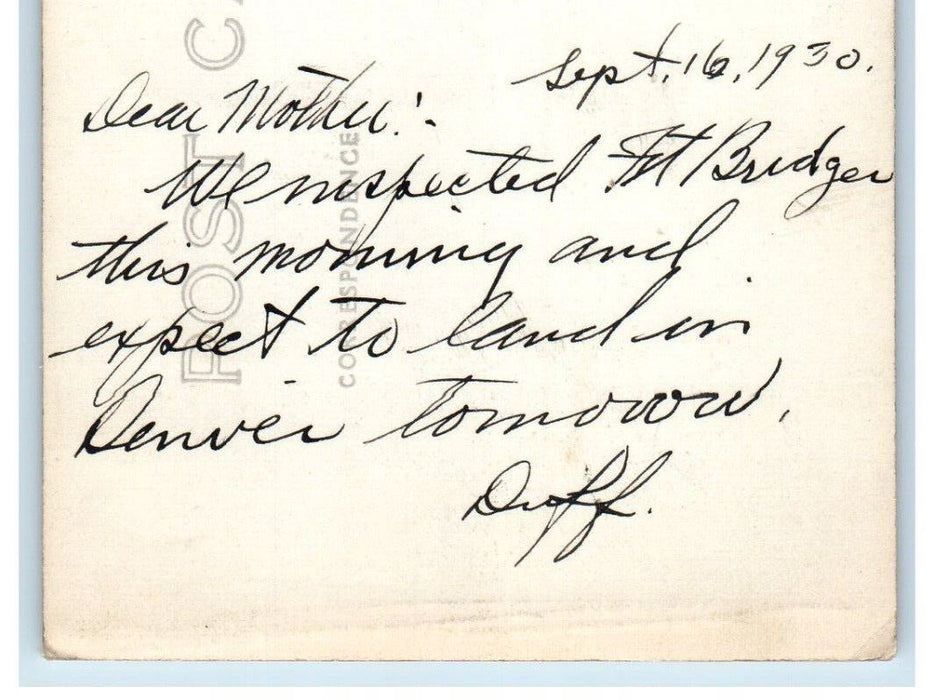 POST CA
CORRESPONDENCE
Sept. 16, 1930.
Dear Mother:-
We inspected Ft Bridger
this morning and
expect to land in
Denver tomorrow.
Duff.